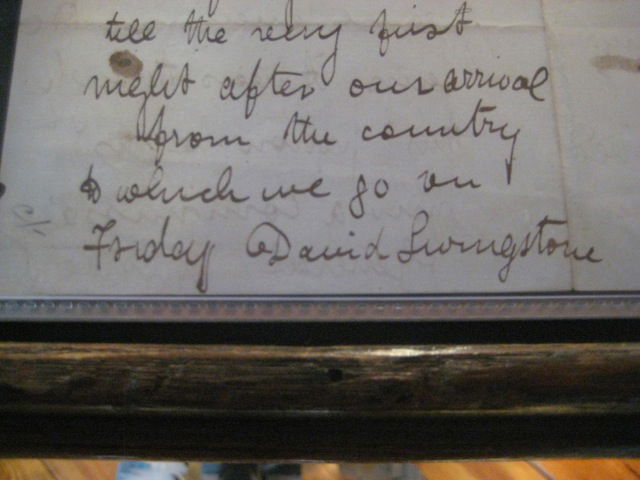 till the very first
night after our arrival
from the country
to which we go on
Friday David Livingstone